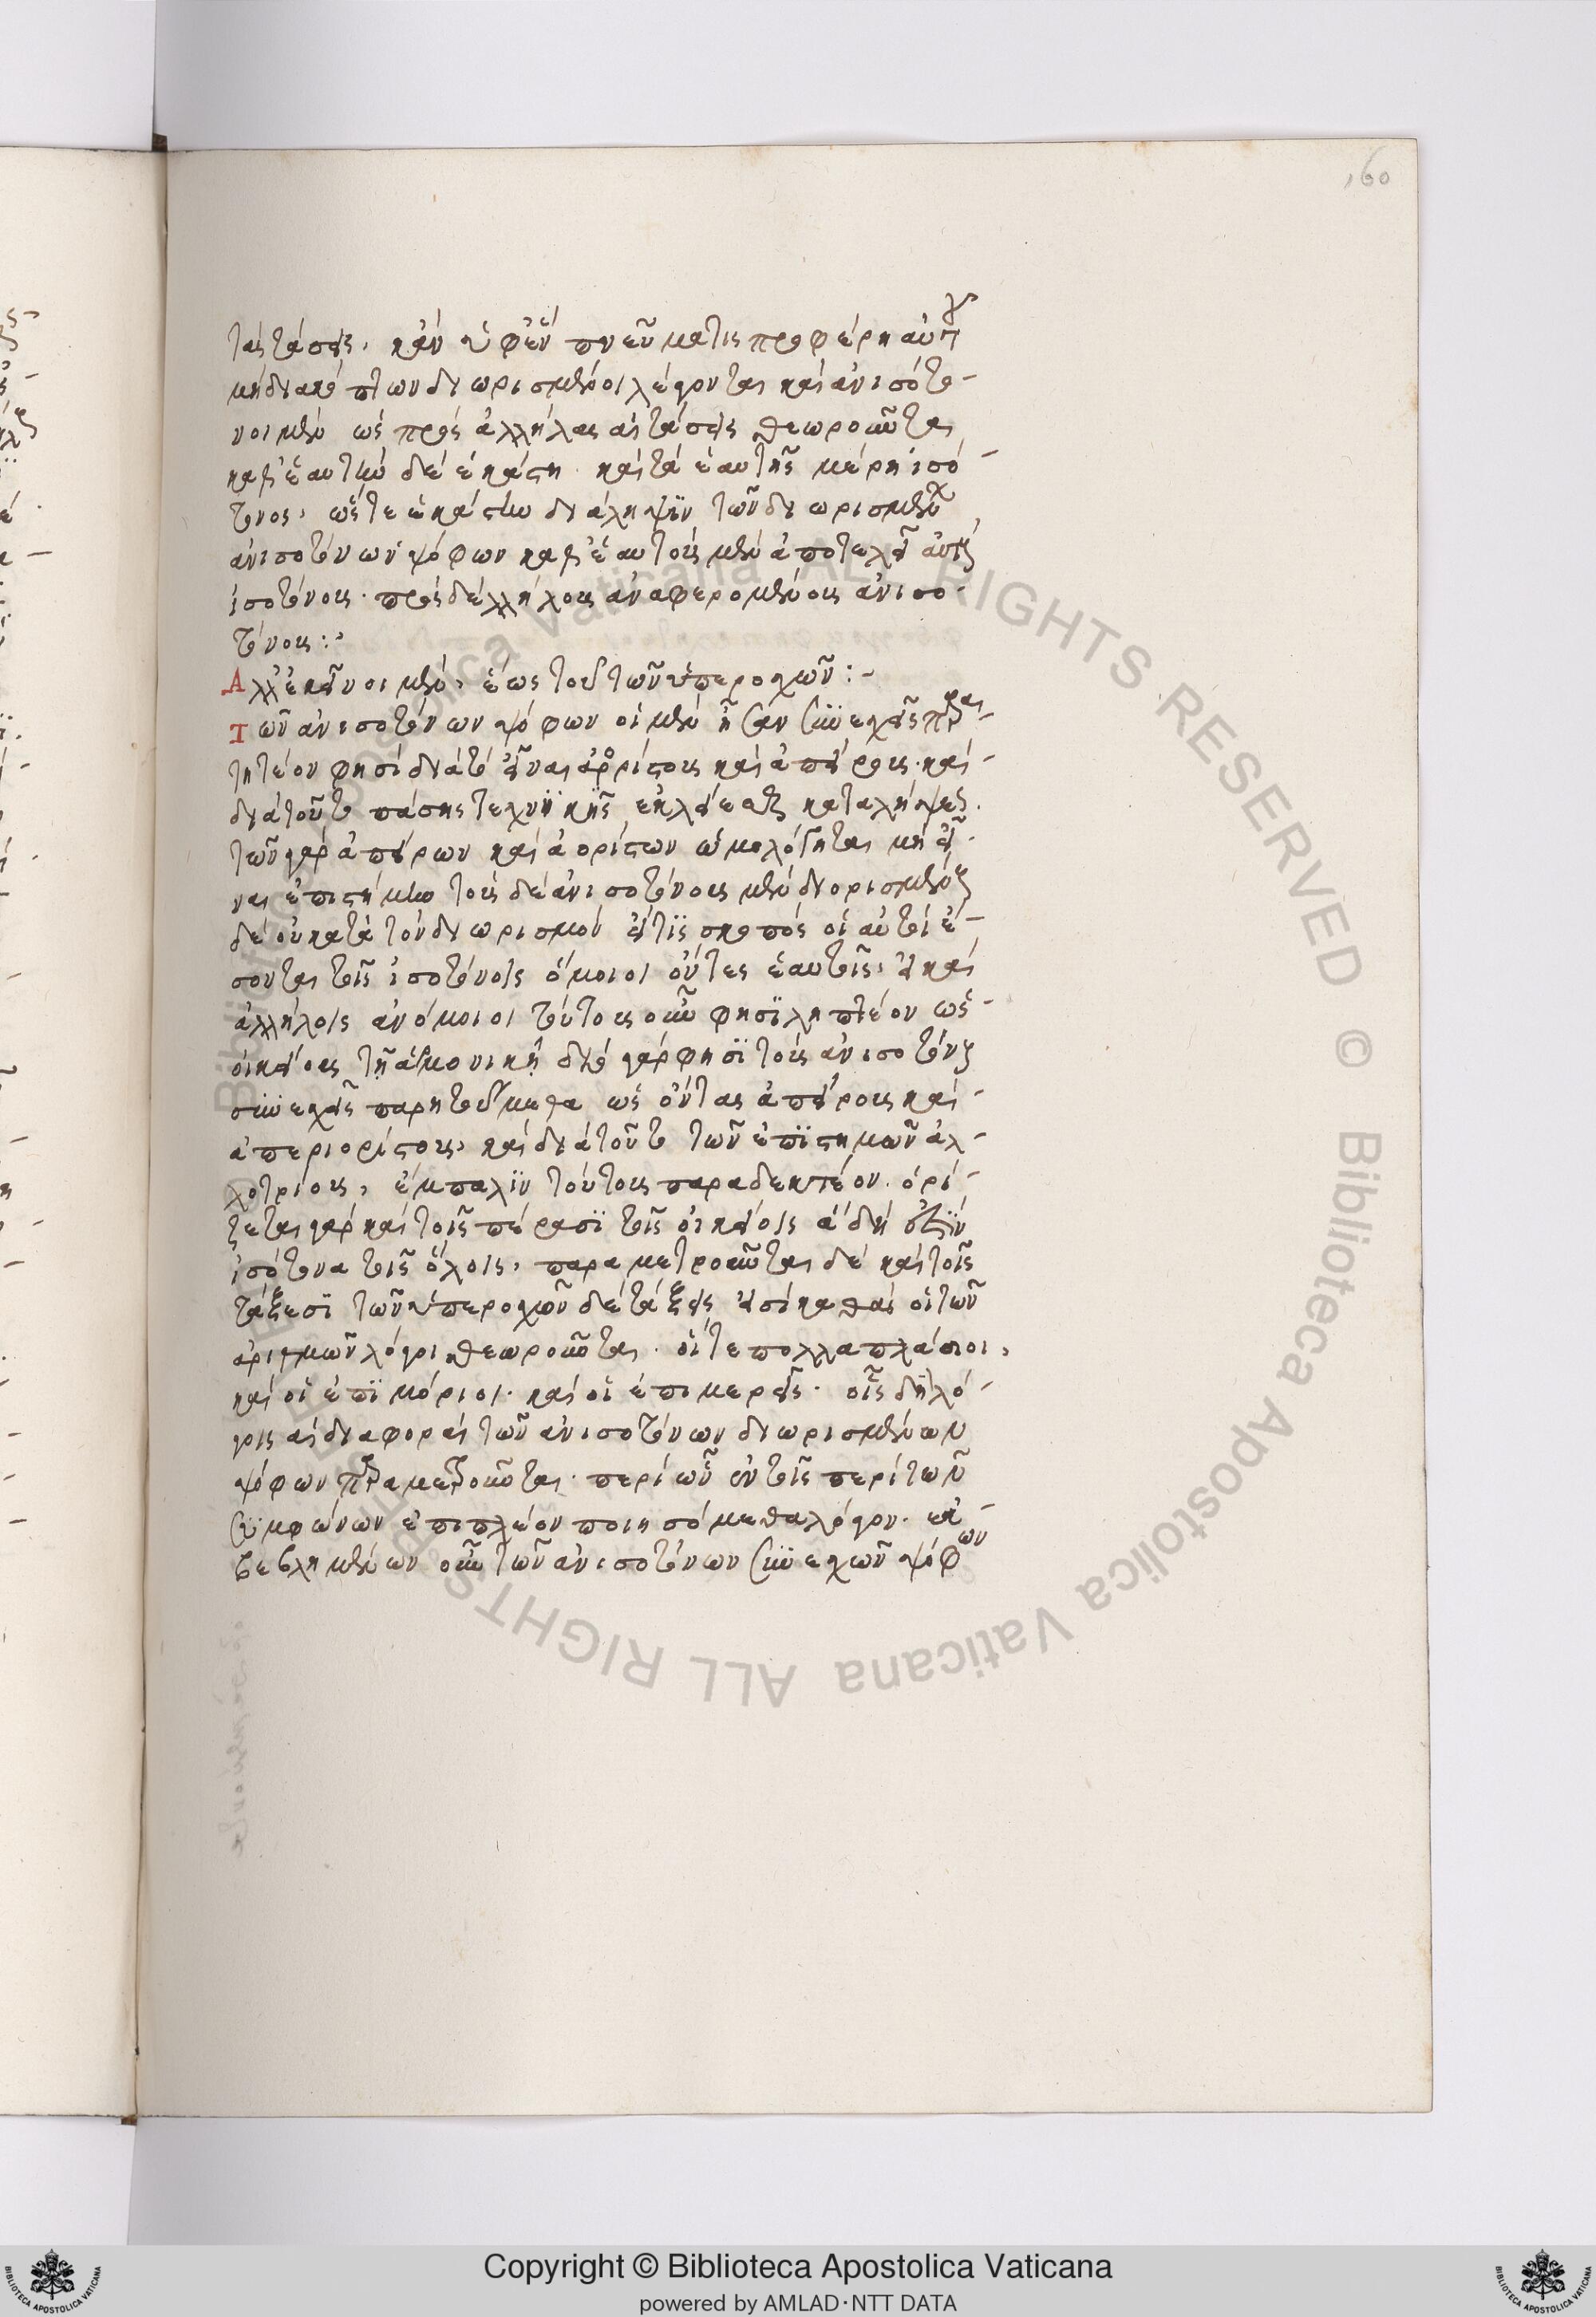 160
τὰς τάσεις, κἂν ὑφ' ἓν πνεῦμά τις προφέρη αὐτ
μὴ διακόπτων διωρισμένοι λέγονται καὶ ἀνισότο-
νοι μὲν ὡς πρὸς ἀλλήλας αἱ τάσεις θεωροῦνται
καθ' ἑαυτὴν δὲ ἑκάστη καὶ τὰ ἑαυτῆς μέρη ἰσό-
τονος, ὥστε ἑκάστην διάληψϊν τῶν διωρισμένων
ἀνισοτόνων ψόφων καθ' ἑαυτοὺς μὲν ἀποτελεῖν αὐτοὺς
ἰσοτόνους· πρὸς δ' ἀλλήλους ἀναφερομένους ἀνισο-
τόνους:
Ἀλλ' ἐκεῖνοι μὲν, ἕως τοῦ τῶν ὑπεροχῶν:-
Τῶν ἀνισοτόνων ψόφων οἱ μὲν ἦσαν συνεχεῖς παραι-
τητέον φησὶ διὰ τὸ εἶναι ἀορίστους καὶ ἀπείρους· καὶ
διὰ τοῦτο πάσης τεχνϊκῆς ἐκλείεσθαι καταλήψεως.
τῶν γὰρ ἀπείρων καὶ ἀορίστων ὡμολόγηται μὴ εἶ-
ναι ἐπιστήμην τοὺς δὲ ἀνισοτόνους μὲν διορισμένους
δὲ οὐ κατὰ τὸν διωρισμὸν εἴ τϊς σκοπὸς οἱ αὐτοὶ ἔ-
σονται τοῖς ἰσοτόνοις ὅμοιοι ὄντες ἑαυτοῖς, εἰ καὶ
ἀλλήλοις ἀνόμοιοι τούτους οὖν φησϊ ληπτέον ὡς
οἰκείους τῇ ἁρμονικῇ διὸ γάρ φησϊ τοὺς ἀνισοτόνους
συνεχεῖς παρητούμεθα ὡς ὄντας ἀπείρους καὶ
ἀπεριορίστους, καὶ διὰ τοῦτο τῶν ἐπϊστημῶν ἀλ-
λοτρίους, ἔμπαλϊν τούτους παραδεκτέον. ὁρί-
ζεται γὰρ καὶ τοῖς πέρασϊ τοῖς οἰκείοις ἃ δή ἐστϊν
ἰσότονα τοῖς ὅλοις, παραμετροῦνται δὲ καὶ τοῖς
τάξεσϊ τῶν ὑπεροχῶν δὲ τάξεις εἰσὶ καθὰ οἱ τῶν
ἀριθμῶν λόγοι θεωροῦνται. οἵ τε πολλαπλάσιοι,
καὶ οἱ ἐπϊμόριοι. καὶ οἱ ἐπιμερεῖς. οἷς δὴ λό-
γοις αἱ διαφοραὶ τῶν ἀνισοτόνων διωρισμένων
ψόφων παραμετροῦνται. περὶ ὧν ἐν τοῖς περὶ τῶν
συμφώνων ἐπιπλέον ποιησόμεθα λόγον. ἐκ-
βεβλημένων οὖν τῶν ἀνισοτόνων συνεχῶν ψόφων
Copyright © Biblioteca Apostolica Vaticana
powered by AMLAD·NTT DATA